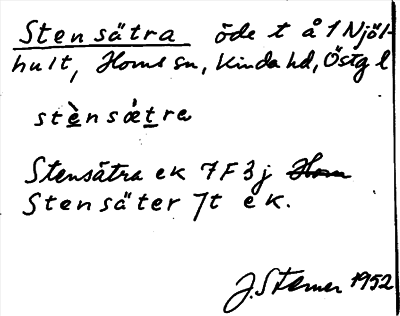 Stensätra öde t å 1 Njöl-
hult, Horns sn, Kinda hd, Östg l
stènsǽtra
Stensätra ek 7F3j Horn
Stensäter Jt ek.
J. Sterner 1952